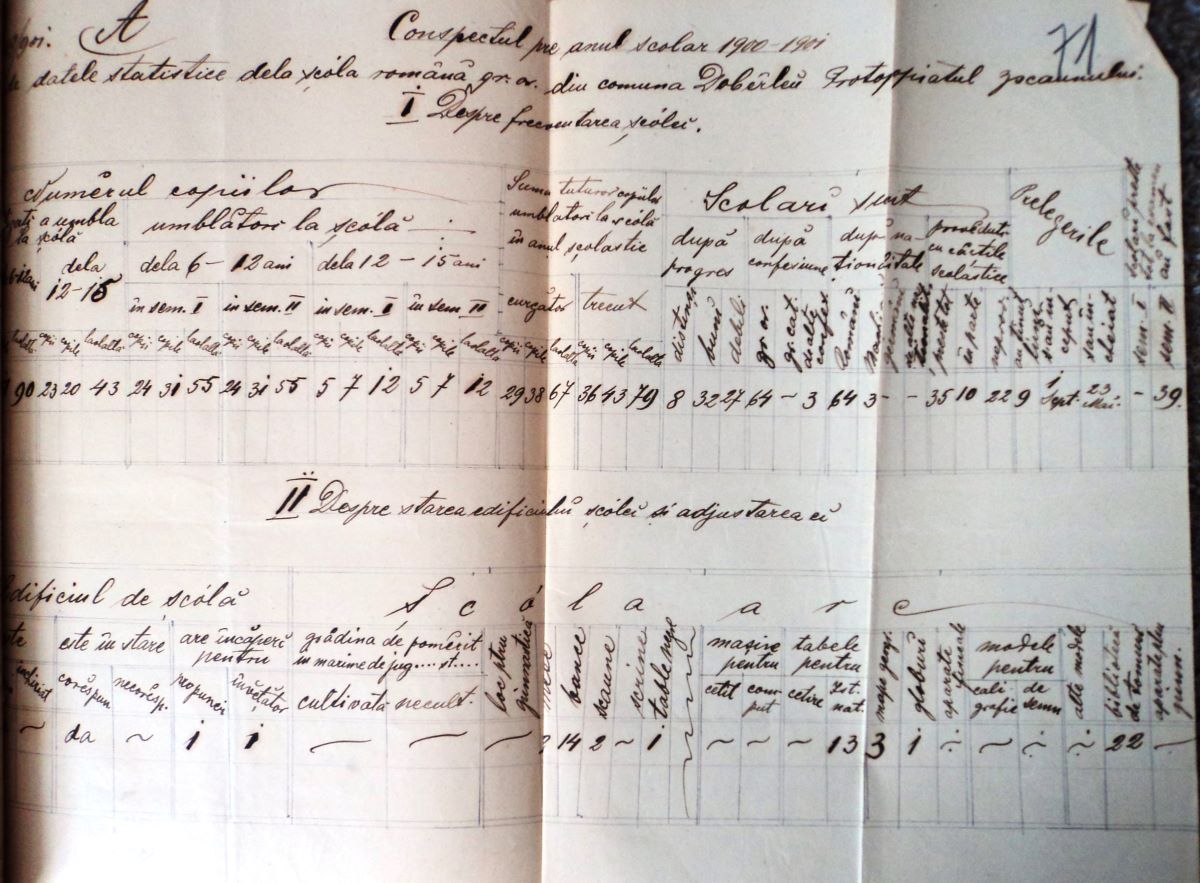 901. A Conspectul pre anul scolar 1900-1901 71
datele statistice dela șcóla română gr. or. din comuna Dobêrleu
I Despre frecuentarea șcólei.
Numêrul copiilor
a umbla la șcólă
umblători la șcólă
Suma tuturor copiilor umblători la șcólă în anul școlastic
Scolari sunt
Prelegerile
dela 12-15
dela 6 - 12 ani
dela 12 - 15 ani
după progres
după confesiune
după naționalitate
provĕduți cu cărțile scolastice
în sem. I
în sem. II
în sem. I
în sem. II
curgător
trecut
distinși
buni
debili
gr. or.
gr. cat.
de alte confes.
Români
în parte
s'au încheiat
sem. I
sem. II
copii copile laolaltă
90 23 20 43 24 31 55 24 31 55 5 7 12 5 7 12 29 38 67 36 43 79 8 32 27 64 ~ 3 64 3 - - 35 10 22 9 1 Sept. 23 Mai. - 39.
II Despre starea edificiului șcólei și adjustarea ei
edificiul de șcólă
Ș c ó l a a r e
este în stare
are încăperi pentru
grădina de pomêrit în marime de jug.....st.....
loc ptru gimnastică
mese
bance
scaune
scrine
table negre
masine pentru
tabele pentru
mape geogr.
globuri
aparate
modele pentru
alte modele
bibliotecă de tomuri
aparate ptru gimn.
corĕspun.
necorĕsp.
propuneri
învĕțător
cultivată
necult.
cetit
comput
cetire
Ist. nat.
caligrafie
de semn
~ da ~ 1 1 ~ ~ ~ 14 2 ~ 1 ~ ~ ~ 13 3 1 ~ ~ ~ ~ 22 ~